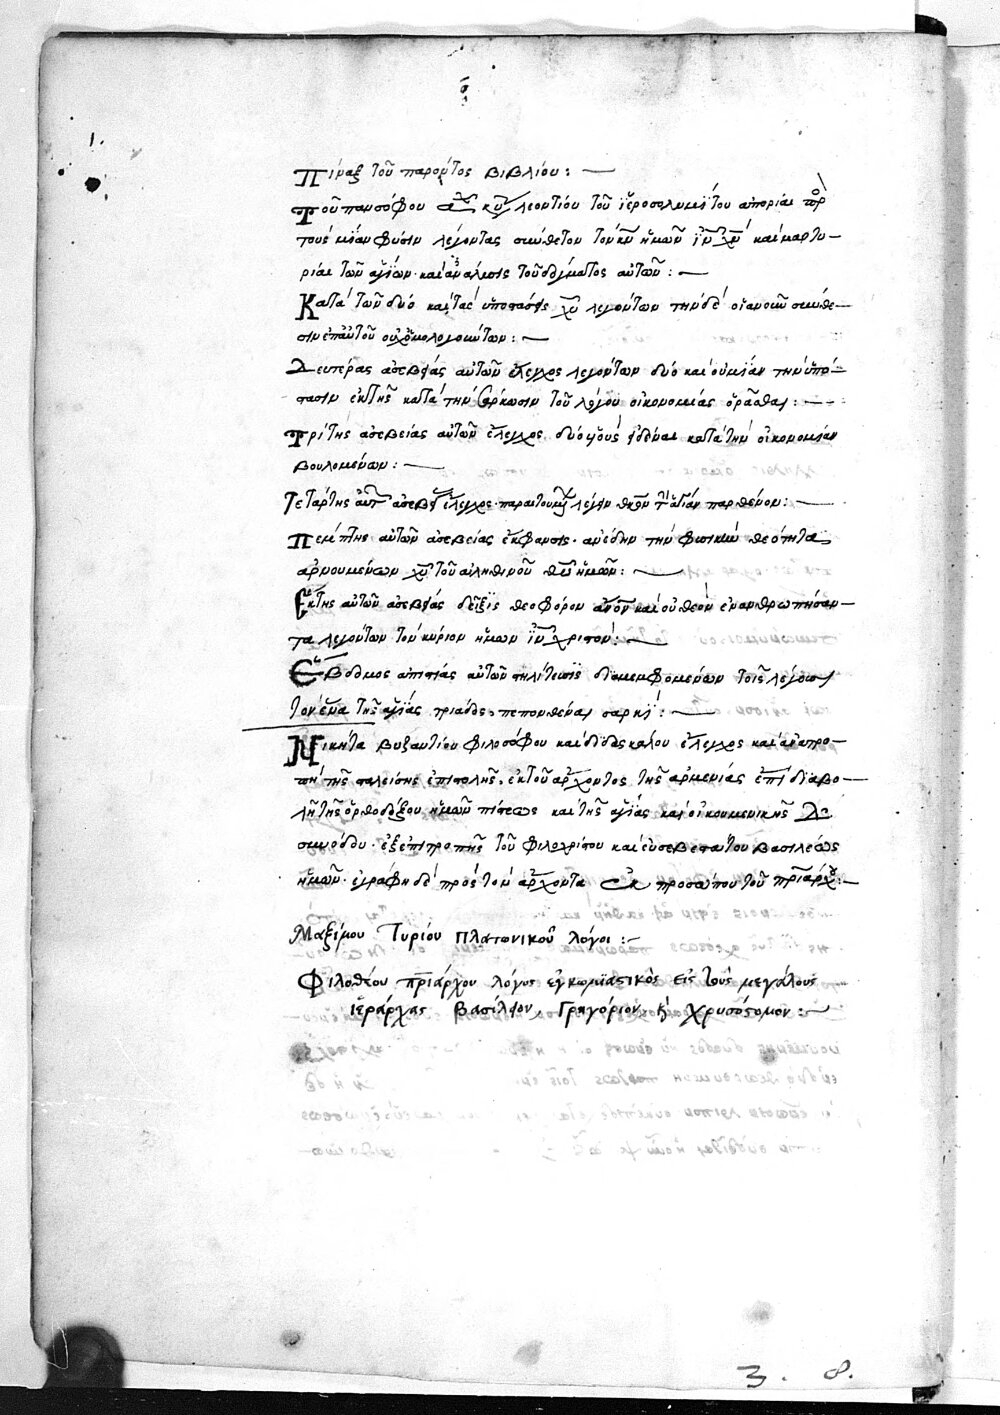 1.
Πίναξ τοῦ παρόντος βιβλίου: —
Τοῦ πανσόφου κυροῦ λεοντίου τοῦ ἱεροσολυμίτου ἀπορίαι πρ
τοὺς μίαν φύσιν λέγοντας σύνθετον τὸν κν ἡμῶν ιν χν καὶ μαρτυ–
ρίαι τῶν ἁγίων· καὶ ἀνάλυσις τοῦ δόγματος αὐτῶν: —
Κατὰ τῶν δύο καὶ τὰς ὑποστάσεις χυ λεγόντων τὴν δὲ οἱανοῦν σύνθε–
σιν ἐπ αὐτοῦ οὐχ ὁμολογούντων: —
Δευτέρας ἀσεβείας αὐτῶν ἔλεγχος λεγόντων δύο καὶ οὐ μίαν τὴν ὑπό–
στασιν ἐκ τῆς κατὰ τὴν σάρκωσιν τοῦ λόγου οἰκονομίας ὁρᾶσθαι: —
Τρίτης ἀσεβείας αὐτῶν ἔλεγχος δύο υἱοὺς εἰδέναι κατὰ τὴν οἰκονομίαν
βουλομένων: —
Τετάρτης αὐτ ἀσεβείας ἔλεγχος· παραιτουμένων λέγειν θκον τ ἁγίαν παρθένον: —
Πέμπτης αὐτῶν ἀσεβείας ἔκφανσις· ἀνέδην τὴν φυσικὴν θεότητα
ἀρνουμένων χυ τοῦ ἀληθινοῦ θυ ἡμῶν: —
Ἕκτης αὐτῶν ἀσεβείας δεῖξις θεοφόρον ανον καὶ οὐ θεὸν ἐνανθρωπήσαν–
τα λεγόντων τὸν κύριον ἡμῶν ιν χριστόν: —
Ἕβδομος ἀπιστίας αὐτῶν στηλίτευσις διαμεμφομένων τοῖς λέγουσι
τὸν ἕνα τῆς ἁγίας τριάδος, πεπονθέναι σαρκί: —
Νικήτα βυζαντίου φιλοσόφου καὶ διδασκάλου ἔλεγχος καὶ ἀνατρο–
πὴ τῆς σταλείσης ἐπιστολῆς, ἐκ τοῦ ἄρχοντος τῆς ἀρμενίας ἐπὶ διαβο–
λῇ τῆς ὀρθοδόξου ἡμῶν πίστεως καὶ τῆς ἁγίας καὶ οἰκουμενικῆς δης
συνόδου· ἐξ ἐπιτροπῆς τοῦ φιλοχρίστου καὶ εὐσεβεστάτου βασιλέως
ἡμῶν· ἐγράφη δὲ πρὸς τὸν ἄρχοντα ὡς ἐκ προσώπου τοῦ πριάρχου: —
Μαξίμου Τυρίου πλατωνικοῦ λόγοι: —
Φιλοθέου πριάρχου λόγος ἐγκωμιαστικὸς εἰς τοὺς μεγάλους
ἱεράρχας βασίλειον, Γρηγόριον, κ χρυσόστομον: —
3. 8.